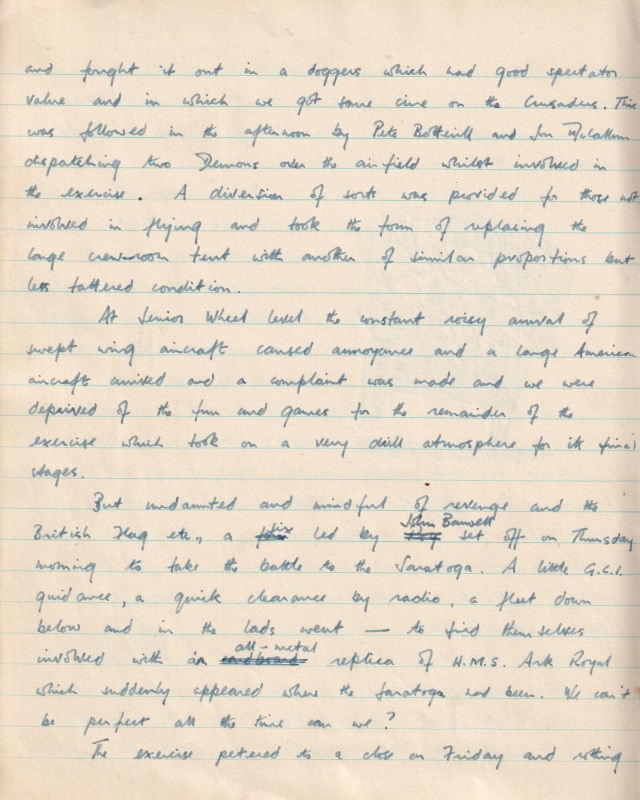 and fought it out in a doggers which had good spectator
value and in which we got some cine on the Crusaders. This
was followed in the afternoon by Pete Botterill and Jon McCallum
dispatching two Demons over the airfield whilst involved in
the exercise. A diversion of sorts was provided for those not
involved in flying and took the form of replacing the
large crew-room tent with another of similar propostions but
less tattered condition.
At Senior Wheel level the constant noisy arrival of
swept wing aircraft caused annoyance and a large American
aircraft arrived and a complaint was made and we were
deprived of the fun and games for the remainder of the
exercise which took on a very dull atmosphere for its final
stages.
But undaunted and mindful of revenge and the
British Flag etc., a six led by John Barwell set off on Thursday
morning to take the battle to the Saratoga. A little G.C.I.
guidance, a quick clearance by radio, a fleet down
below and in the lads went — to find themselves
involved with an all-metal replica of H.M.S. Ark Royal
which suddenly appeared where the Saratoga had been. We can't
be perfect all the time can we?
The exercise petered to a close on Friday and nothing